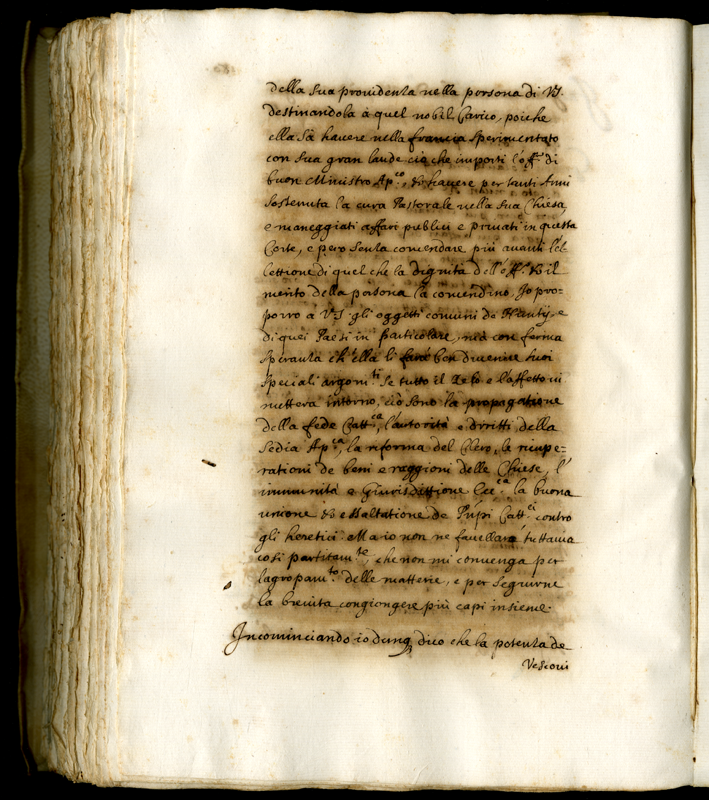 della sua providenza nella persona di VS.
destinandola à quel nobil Carico, poiche
ella sà havere nella francia sperimentato
con sua gran laude ciò che importi l'off.º di
buon Ministro Ap.co, & havere per tanti Anni
sostenuta la cura Pastorale nella sua Chiesa,
e maneggiati affari publici e privati in questa
Corte, e però senza comendare più avanti l'el-
lettione di quel che la dignità dell'off.º & il
merito della persona la comendino. Io pro=
porrò à VS gli oggetti comuni de Nuntij, e
di quei Paesi in particolare, mà con ferma
speranza ch'ella li farà ben divenire suoi
speciali argom.ti se tutto il Zelo e l'affetto vi
metterà intorno, ciò sono la propagatione
della fede Catt.ca, l'autorità e dritti della
Sedia Ap.ca, la riforma del Clero, le ricupe=
rationi de beni e raggioni delle Chiese, l'
immunità e Giurisdittione Ecc.ca la buona
unione & essaltatione de Prípi Catt.ci contro
gli heretici. Ma io non ne favellarò tuttavia
così partitam.te, che non mi convenga per
l'agropam.to delle matterie, e per seguirne
la brevità congiongere più capi insieme.
Incominciando io dunq dico che la potenza de
Vescovi